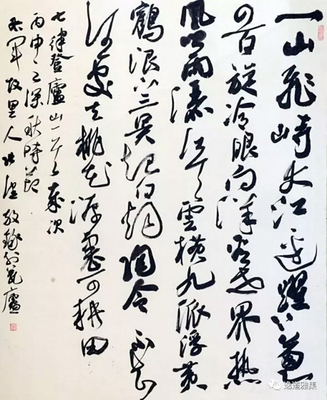 一山飛峙大江邊躍上葱
四百旋冷眼向洋看世界热
風吹雨灑江天雲橫九派浮黄
鶴浪下三吴起白烟陶令不知
何處去桃花源里可耕田
七律登廬山一首歲次
丙申之深秋時節
右軍故里人敬錄於廬
雅集